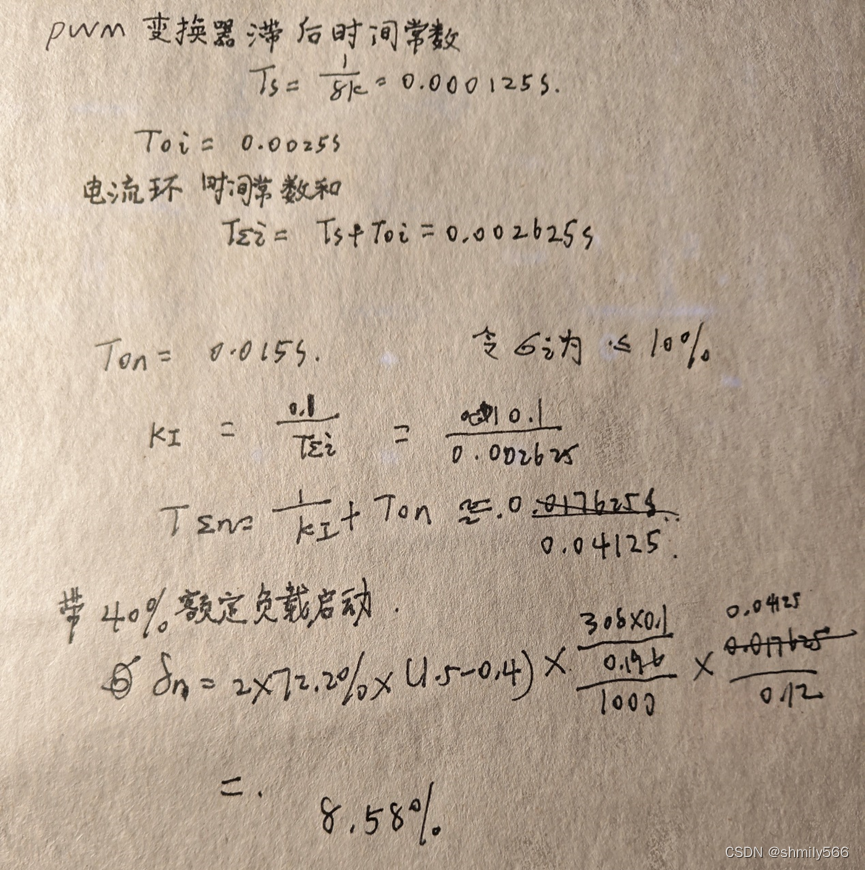 PWM 变换器滞后时间常数
Ts = 1/8k = 0.000125s.
Toi = 0.0025s
电流环 时间常数和
TΣi = Ts + Toi = 0.002625s
Ton = 0.015s. 令 σi为 ≤ 10%
KI = 0.1/TΣi = 0.1/0.002625
TΣn = 1/KI + Ton ≈ 0.017625s.
0.04125.
带 40% 额定负载启动.
δn = 2×72.2%×(1.5-0.4) × 305×0.1/0.196/1000 × 0.04125/0.12
0.017625
=.
8.58%
CSDN @shmily566